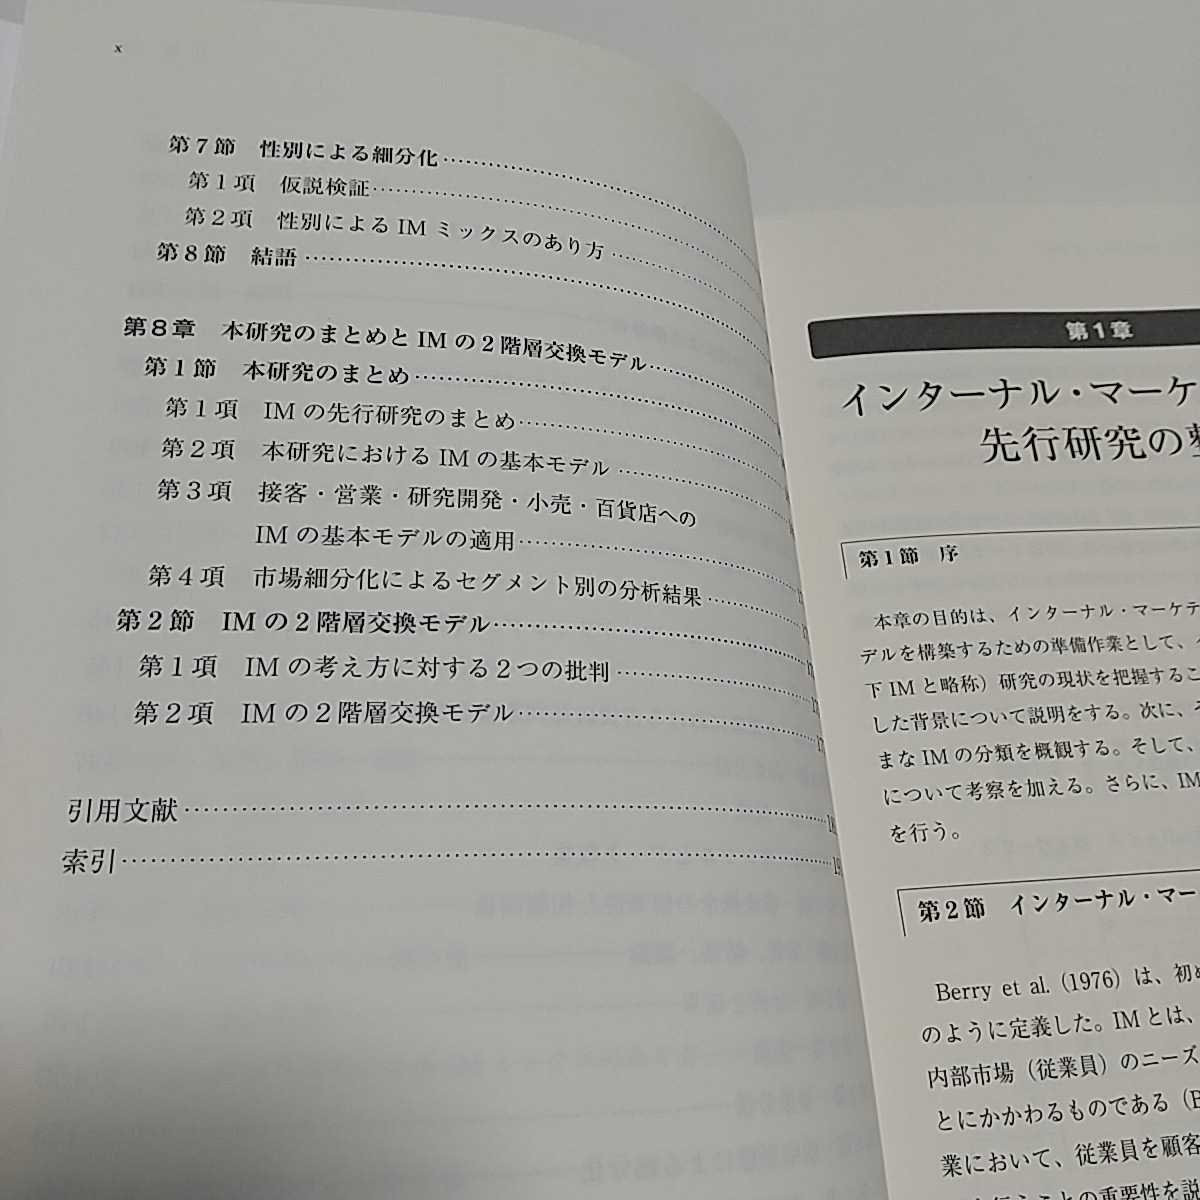 x
第7節　性別による細分化
第1項　仮説検証
第2項　性別によるIMミックスのあり方
第8節　結語
第8章　本研究のまとめとIMの2階層交換モデル
第1節　本研究のまとめ
第1項　IMの先行研究のまとめ
第2項　本研究におけるIMの基本モデル
第3項　接客・営業・研究開発・小売・百貨店への
IMの基本モデルの適用
第4項　市場細分化によるセグメント別の分析結果
第2節　IMの2階層交換モデル
第1項　IMの考え方に対する2つの批判
第2項　IMの2階層交換モデル
引用文献
索引
第1章
インターナル・マーケ
先行研究の
第1節　序
本章の目的は、インターナル・マーケテ
デルを構築するための準備作業として、
下IMと略称）研究の現状を把握するこ
した背景について説明をする。次に、
まなIMの分類を概観する。そして、
について考察を加える。さらに、IM
を行う。
第2節　インターナル・マー
Berry et al. (1976) は、初め
のように定義した。IMとは、
内部市場（従業員）のニーズ
とにかかわるものである（B
業において、従業員を顧客
との重要性を説